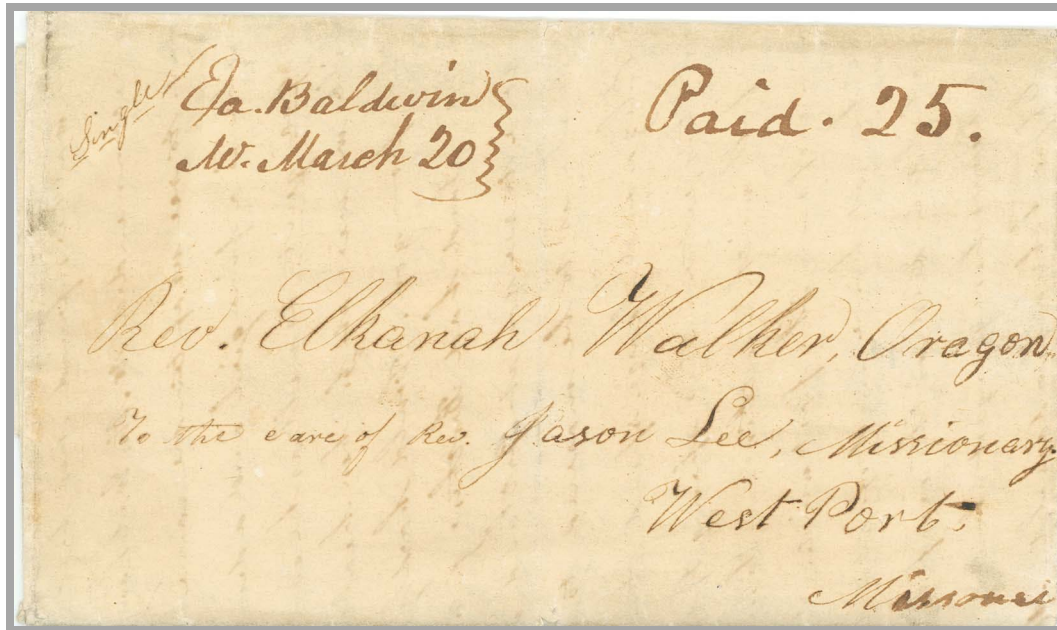 Single
Ea. Baldwin
Me. March 20
Paid. 25.
Rev. Elkanah Walker, Oragon,
To the care of Rev. Jason Lee, Missionary.
West Port,
Missouri